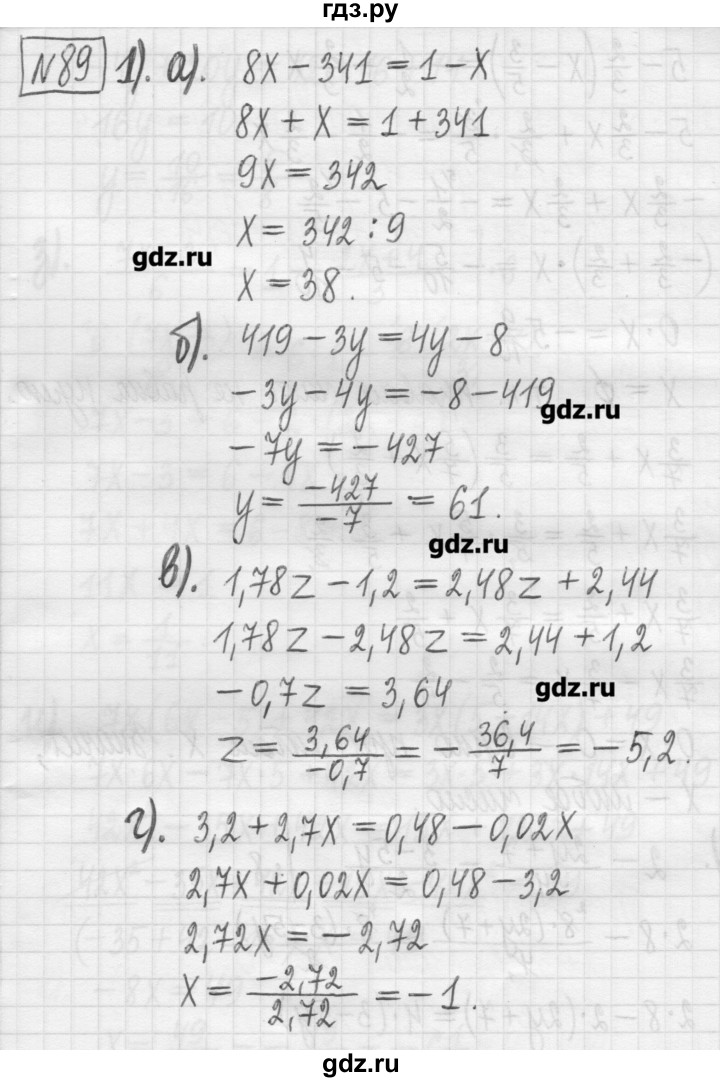 гдз.ру
№89 1). а). 8x − 341 = 1 − x
8x + x = 1 + 341
9x = 342
x = 342 : 9
gdz.ru
x = 38.
б). 419 − 3y = 4y − 8
−3y − 4y = −8 − 419
gdz.ru
−7y = −427
y = −427/−7 = 61.
gdz.ru
в). 1,78z − 1,2 = 2,48z + 2,44
1,78z − 2,48z = 2,44 + 1,2
−0,7z = 3,64
gdz.ru
z = 3,64/−0,7 = − 36,4/7 = −5,2.
г). 3,2 + 2,7x = 0,48 − 0,02x
2,7x + 0,02x = 0,48 − 3,2
2,72x = −2,72
x = −2,72/2,72 = −1.
gdz.ru